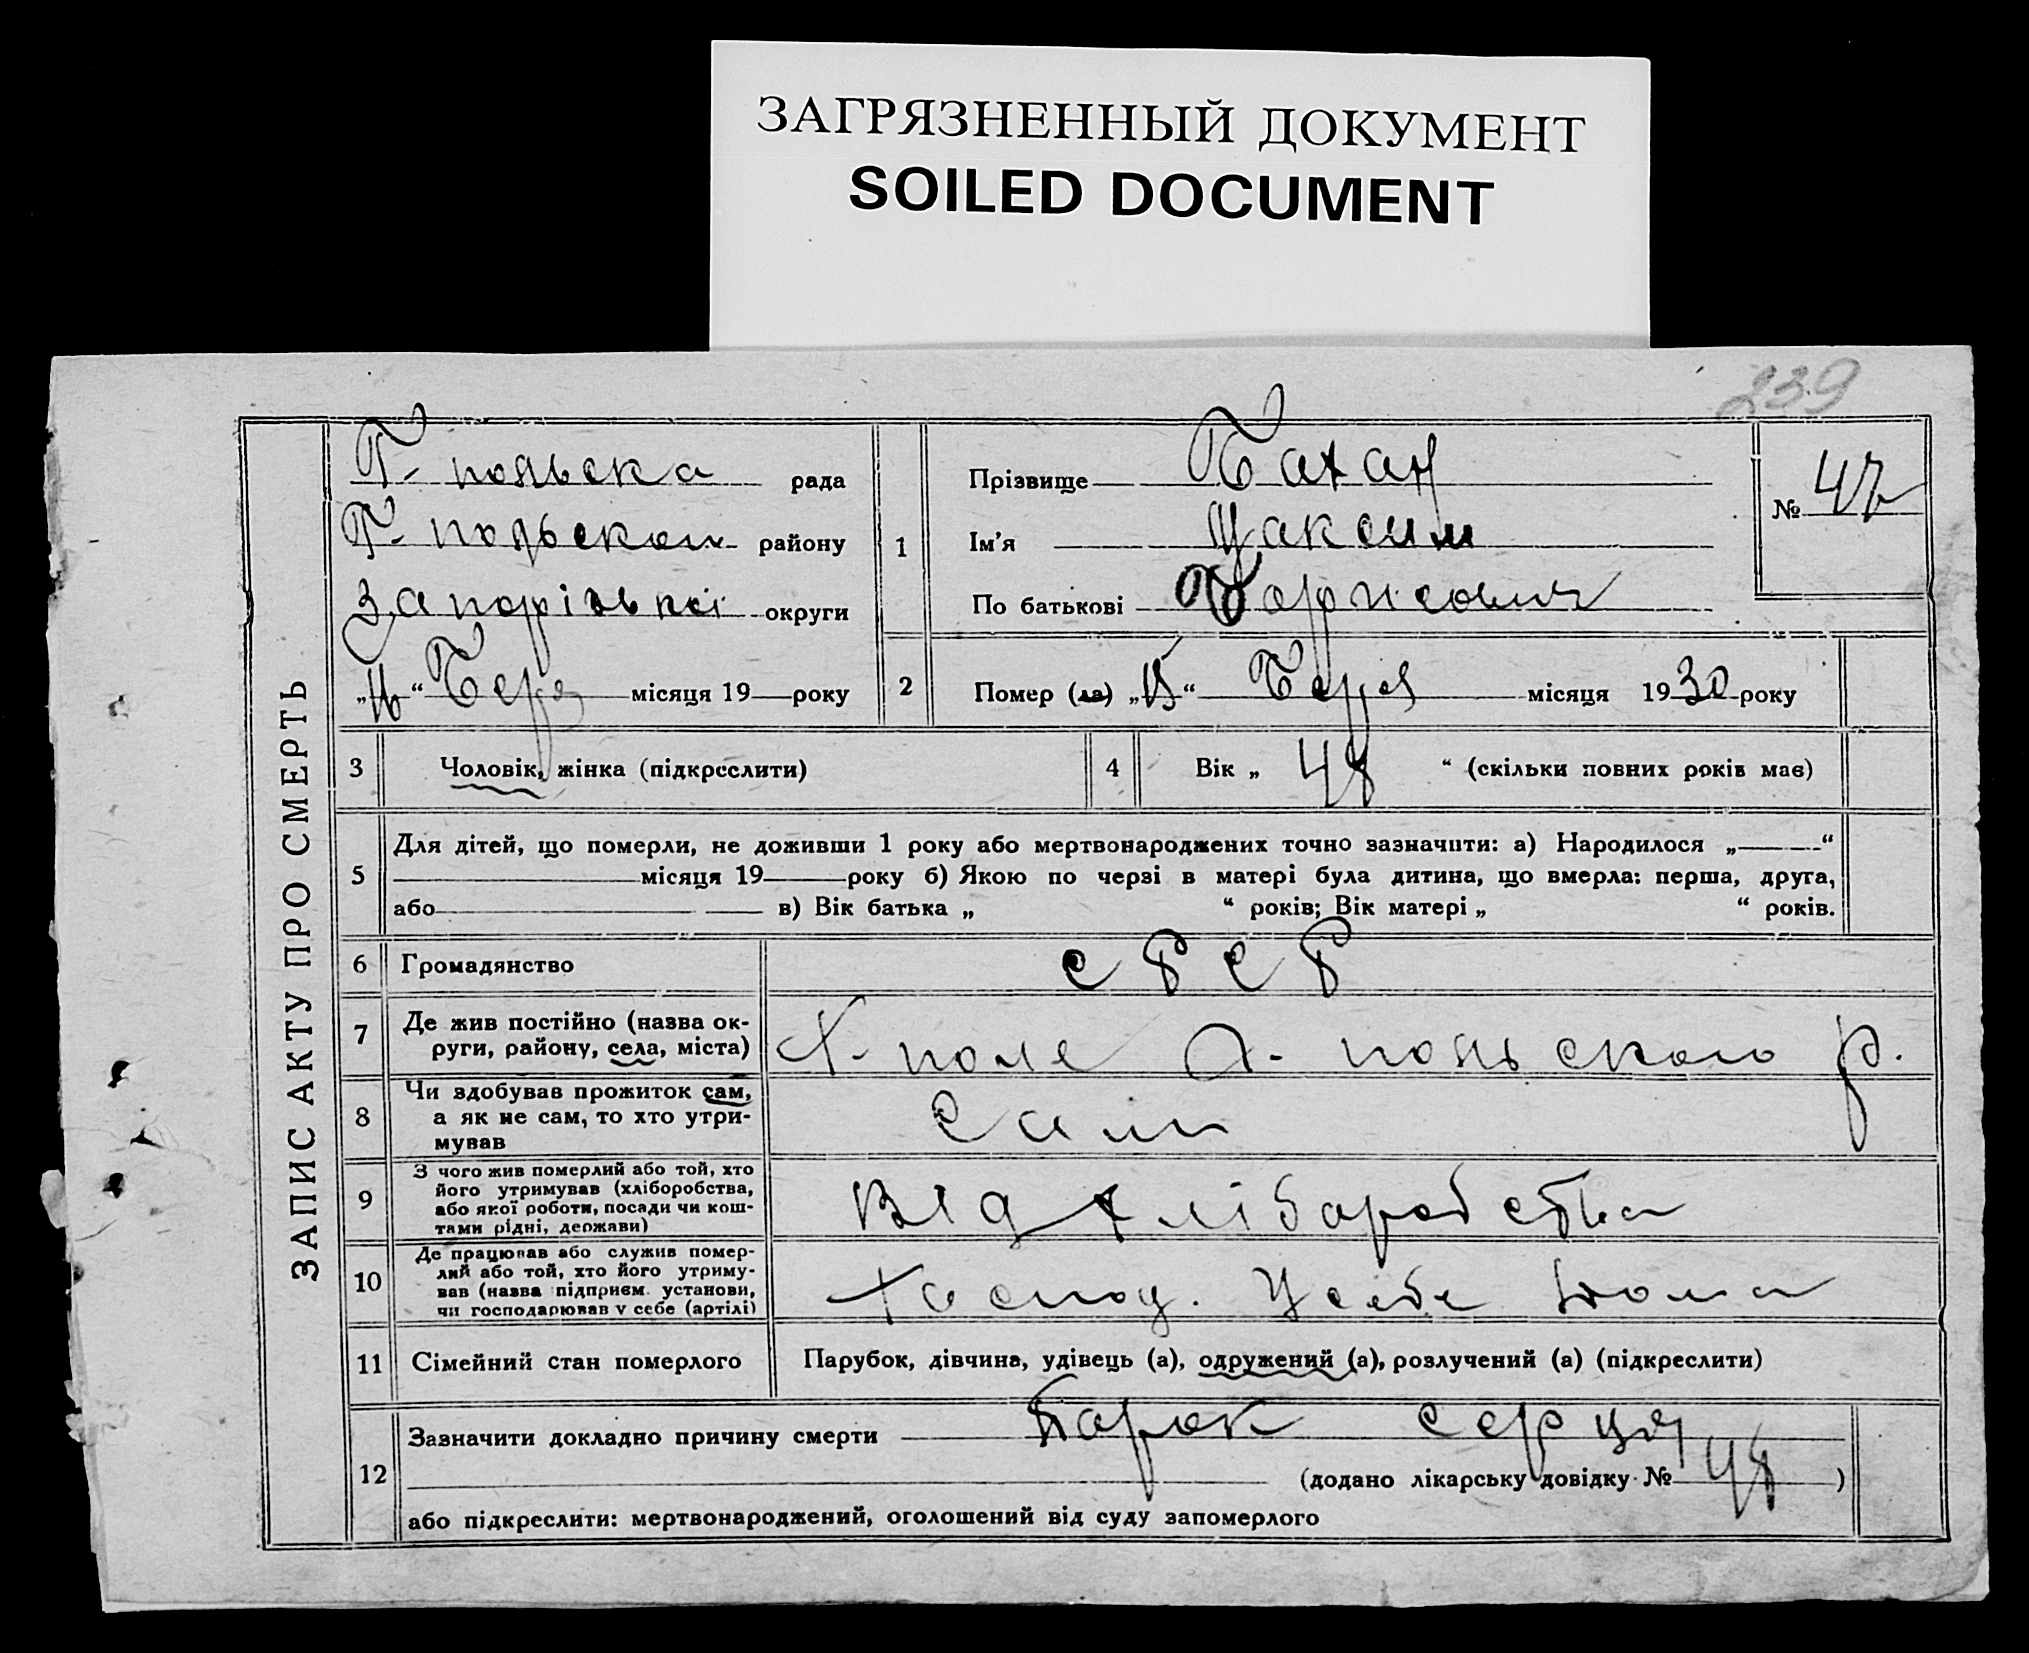 ЗАГРЯЗНЕННЫЙ ДОКУМЕНТ
SOILED DOCUMENT
239
ЗАПИС АКТУ ПРО СМЕРТЬ
Г-польска рада
Г-польского району
Запорізької округи
„16“ Бере місяця 19 року
1
Прізвище Бахан
Ім'я Максим
По батькові
№ 47
2
Помер (ла) „15“ Берез місяця 1930 року
3 Чоловік, жінка (підкреслити)
4 Вік „ 48 “ (скільки повних років мав)
5
Для дітей, що померли, не доживши 1 року або мертвонароджених точно зазначити: а) Народилося „ “
місяця 19 року б) Якою по черзі в матері була дитина, що вмерла: перша, друга,
або в) Вік батька „ “ років; Вік матері „ “ років.
6 Громадянство СРСР
7 Де жив постійно (назва ок-
руги, району, села, міста)
Г-поле Г-польского р.
8 Чи здобував прожиток сам,
а як не сам, то хто утри-
мував
Сам
9 З чого жив померлий або той, хто
його утримував (хліборобства,
або якої роботи, посади чи кош-
тами рідні, держави)
Від хліборобства
10 Де працював або служив помер-
лий або той, хто його утриму-
вав (назва підприєм. установи,
чи господарював у себе (артілі)
Господ. У себе дома
11 Сімейний стан померлого
Парубок, дівчина, удівець (а), одружений (а), розлучений (а) (підкреслити)
12
Зазначити докладно причину смерти Порок серця
(додано лікарську довідку № 48 )
або підкреслити: мертвонароджений, оголошений від суду запомерлого